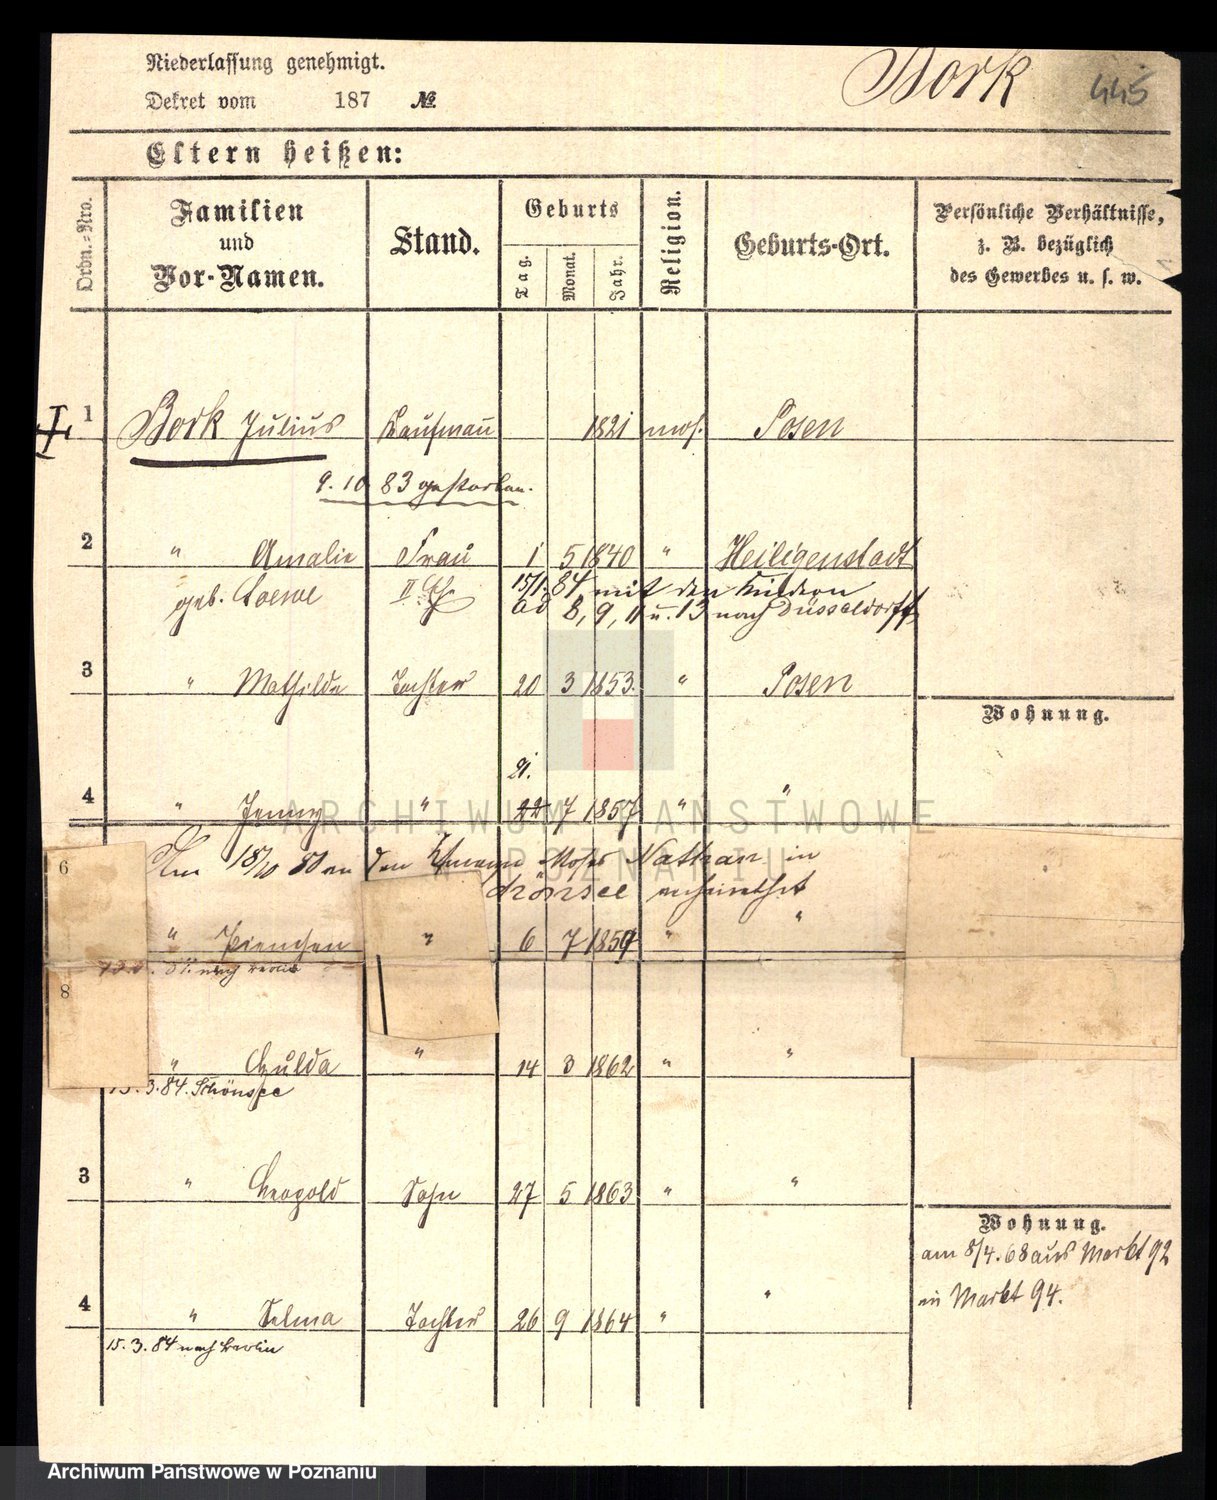 Niederlassung genehmigt.
Dekret vom 187 №
Bork 445
Eltern heißen:
Ordn.-Nro.
Familien und Vor-Namen.
Stand.
Geburts
Tag. Monat. Jahr.
Religion.
Geburts-Ort.
Persönliche Verhältnisse, z. B. bezüglich des Gewerbes u. s. w.
1 Bork Julius Kaufmann 1821 mos. Posen
9. 10 83 gestorben.
2 " Amalie Frau 1 5 1840 " Heiligenstadt
geb. Loewe II Ehe 15/1. 84 mit den Kindern
ad 8, 9, 11 u. 13 nach Düsseldorff
3 " Mathilde Tochter 20 3 1853. " Posen
Wohnung.
21.
4 " Jenny " 22 7 1857 " "
6 Am 18/10 80 an den Kfmann Moses Nathan in
Schönsee verheirathet
" " 6 7 1859 " "
nach Berlin
8 " Hulda " 14 3 1862 " "
15. 3. 84. Schönsee
3 " Leopold Sohn 27 5 1863 " "
Wohnung.
am 8/4. 68 aus Markt 92
in Markt 94.
4 " Selma Tochter 26 9 1864 " "
15. 3. 84 nach Berlin
ARCHIWUM PAŃSTWOWE
W POZNANIU
Archiwum Państwowe w Poznaniu